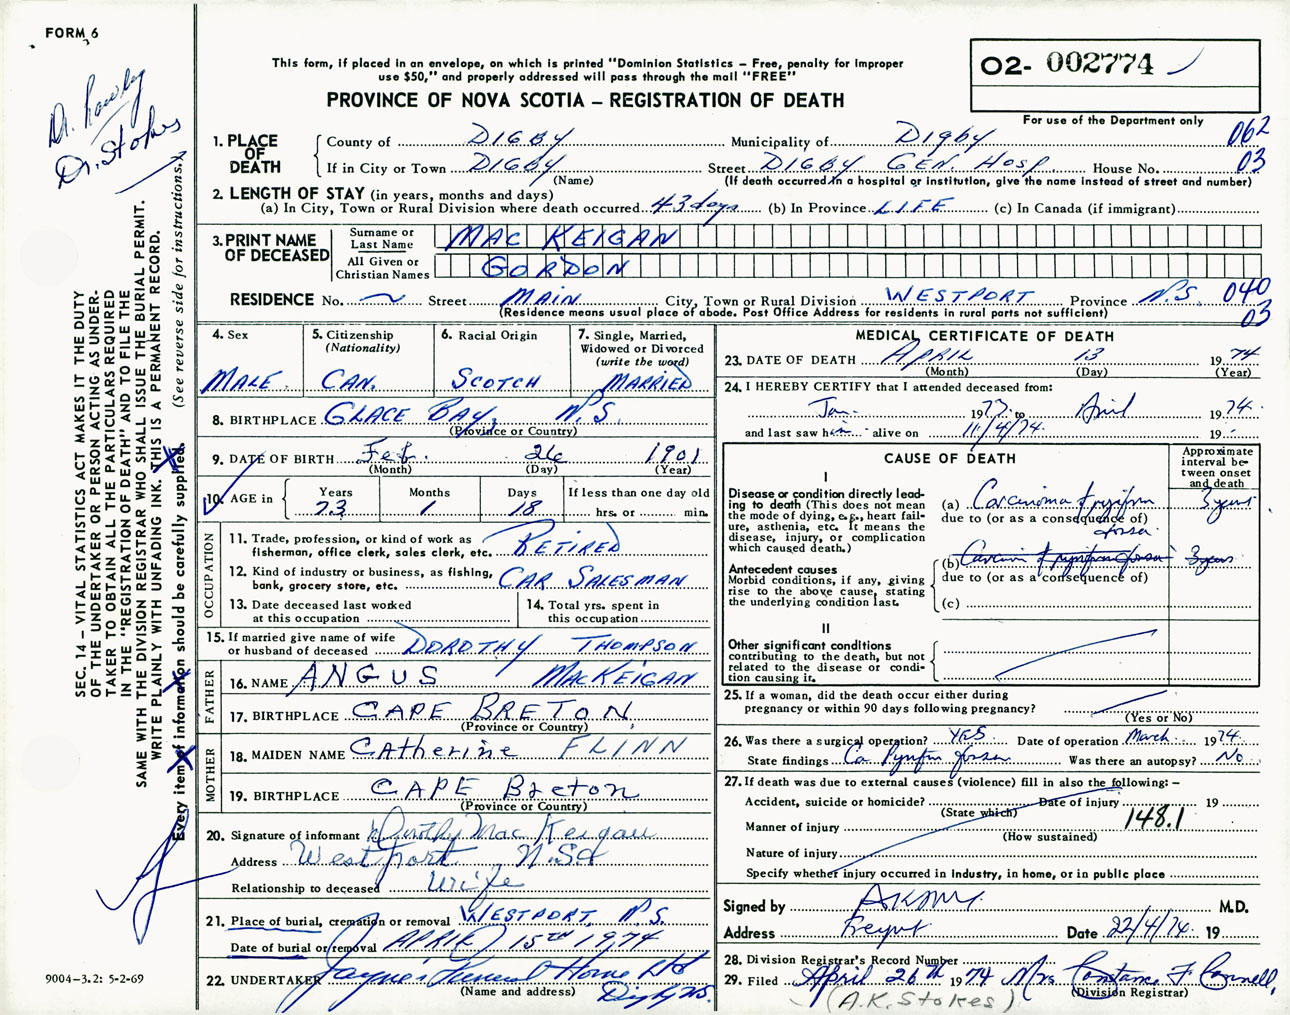 FORM 6
Dr. Rowley
Dr. Stokes
SEC. 14 – VITAL STATISTICS ACT MAKES IT THE DUTY
OF THE UNDERTAKER OR PERSON ACTING AS UNDER-
TAKER TO OBTAIN ALL THE PARTICULARS REQUIRED
IN THE "REGISTRATION OF DEATH" AND TO FILE THE
SAME WITH THE DIVISION REGISTRAR WHO SHALL ISSUE THE BURIAL PERMIT.
WRITE PLAINLY WITH UNFADING INK. THIS IS A PERMANENT RECORD.
Every item of information should be carefully supplied. (See reverse side for instructions.)
9004–3.2: 5-2-69
This form, if placed in an envelope, on which is printed "Dominion Statistics – Free, penalty for improper
use $50," and properly addressed will pass through the mail "FREE"
PROVINCE OF NOVA SCOTIA – REGISTRATION OF DEATH
02- 002774
For use of the Department only
062
03
1. PLACE OF DEATH
County of DIGBY Municipality of DIGBY
If in City or Town DIGBY Street DIGBY GEN. HOSP. House No.
(Name) (If death occurred in a hospital or institution, give the name instead of street and number)
2. LENGTH OF STAY (in years, months and days)
(a) In City, Town or Rural Division where death occurred 43 days (b) In Province LIFE (c) In Canada (if immigrant)
3. PRINT NAME OF DECEASED
Surname or Last Name MAC KEIGAN
All Given or Christian Names GORDON
RESIDENCE No. Street MAIN City, Town or Rural Division WESTPORT Province N.S. 040
(Residence means usual place of abode. Post Office Address for residents in rural parts not sufficient) 03
4. Sex MALE
5. Citizenship (Nationality) CAN.
6. Racial Origin SCOTCH
7. Single, Married, Widowed or Divorced (write the word) MARRIED
8. BIRTHPLACE GLACE BAY, N.S.
(Province or Country)
9. DATE OF BIRTH Feb. 26 1901
(Month) (Day) (Year)
10. AGE in Years 73 Months 1 Days 18 If less than one day old
hrs. or min.
OCCUPATION
11. Trade, profession, or kind of work as fisherman, office clerk, sales clerk, etc. RETIRED
12. Kind of industry or business, as fishing, bank, grocery store, etc. CAR SALESMAN
13. Date deceased last worked at this occupation
14. Total yrs. spent in this occupation
15. If married give name of wife or husband of deceased DOROTHY THOMPSON
FATHER
16. NAME ANGUS MACKEIGAN
17. BIRTHPLACE CAPE BRETON,
(Province or Country)
MOTHER
18. MAIDEN NAME CAtherine FLINN
19. BIRTHPLACE CAPE Breton
(Province or Country)
20. Signature of informant Dorothy Mac Keigan
Address Westport N.S.
Relationship to deceased Wife
21. Place of burial, cremation or removal WESTPORT, N.S.
Date of burial or removal APRIL 15TH 1974
22. UNDERTAKER Jayne's Funeral Home Ltd
(Name and address) Digby N.S.
MEDICAL CERTIFICATE OF DEATH
23. DATE OF DEATH APRIL 13 1974
(Month) (Day) (Year)
24. I HEREBY CERTIFY that I attended deceased from:
Jan. 1973 to April 1974.
and last saw him alive on 11/4/74. 19
CAUSE OF DEATH
Approximate interval between onset and death
I
Disease or condition directly lead-
ing to death (This does not mean
the mode of dying, e.g., heart fail-
ure, asthenia, etc. It means the
disease, injury, or complication
which caused death.)
(a) Carcinoma pyriform fossa 3 years
due to (or as a consequence of)
Antecedent causes
Morbid conditions, if any, giving
rise to the above cause, stating
the underlying condition last.
(b) 3 years
due to (or as a consequence of)
(c)
II
Other significant conditions
contributing to the death, but not
related to the disease or condi-
tion causing it.
25. If a woman, did the death occur either during
pregnancy or within 90 days following pregnancy?
(Yes or No)
26. Was there a surgical operation? YES Date of operation March 1974.
State findings Ca Pyriform fossa Was there an autopsy? No
27. If death was due to external causes (violence) fill in also the following: –
Accident, suicide or homicide? Date of injury 19
(State which)
Manner of injury 148.1
(How sustained)
Nature of injury
Specify whether injury occurred in Industry, in home, or in public place
Signed by M.D.
Address Freeport Date 22/4/74. 19
28. Division Registrar's Record Number
29. Filed April 26th 1974 Mrs Constance F Connell,
(Division Registrar)
(A.K. Stokes)